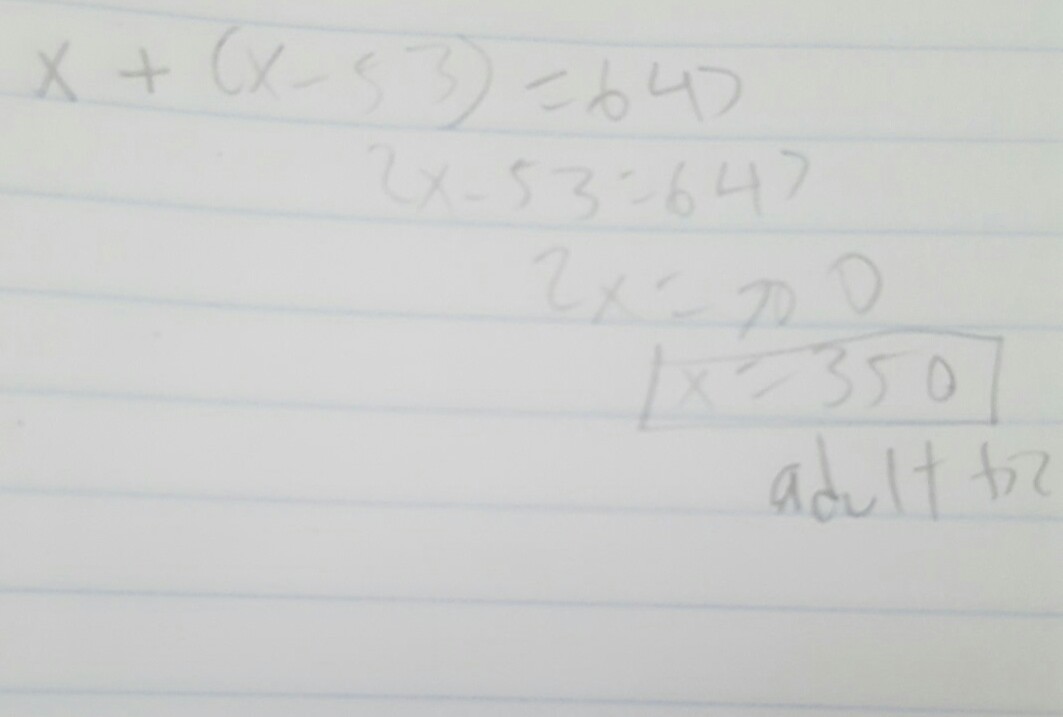 x + (x - 53) = 647
2x - 53 = 647
2x = 700
x = 350
adult